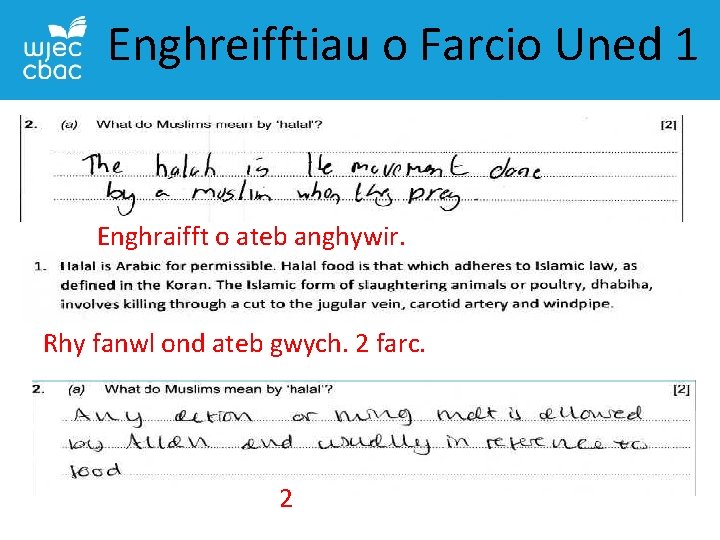 wjec
cbac
Enghreifftiau o Farcio Uned 1
2. (a) What do Muslims mean by 'halal'? [2]
The halah is the movement done
by a muslim when they prey.
Enghraifft o ateb anghywir.
1. Halal is Arabic for permissible. Halal food is that which adheres to Islamic law, as
defined in the Koran. The Islamic form of slaughtering animals or poultry, dhabiha,
involves killing through a cut to the jugular vein, carotid artery and windpipe.
Rhy fanwl ond ateb gwych. 2 farc.
2. (a) What do Muslims mean by 'halal'? [2]
Any action or thing that is allowed
by Allah and usually in reference to
food
2